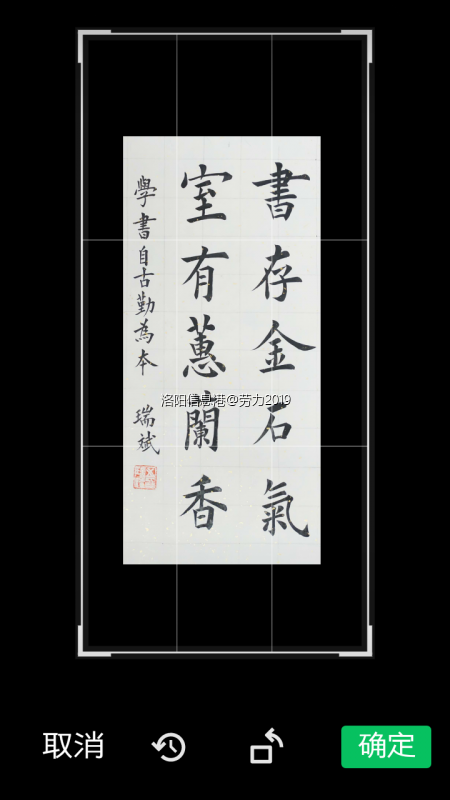 書存金石氣
室有蕙蘭香
學書自古勤為本
瑞斌
洛阳信息港@劳力2019
取消
确定